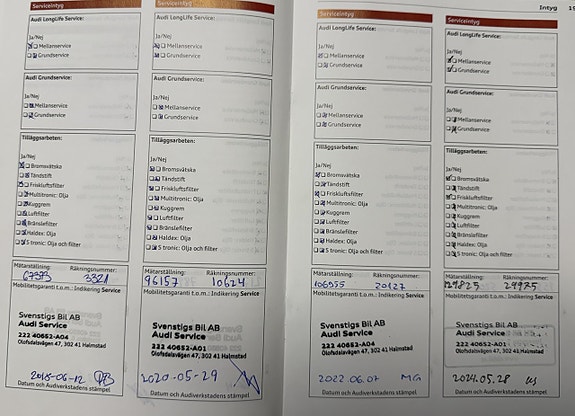 Intyg
Serviceintyg
Audi LongLife Service:
Ja/Nej
Mellanservice
Grundservice
Audi Grundservice:
Ja/Nej
Mellanservice
Grundservice
Tilläggsarbeten:
Ja/Nej
Bromsvätska
Tändstift
Friskluftsfilter
Multitronic: Olja
Kuggrem
Luftfilter
Bränslefilter
Haldex: Olja
S tronic: Olja och filter
Mätarställning: Räkningsnummer:
Mobilitetsgaranti t.o.m.: Indikering Service
Svenstigs Bil AB
Audi Service
222 40652-A04
Olofsdalsvägen 47, 302 41 Halmstad
2018-06-12
Datum och Audiverkstadens stämpel
Serviceintyg
Audi LongLife Service:
Ja/Nej
Mellanservice
Grundservice
Audi Grundservice:
Ja/Nej
Mellanservice
Grundservice
Tilläggsarbeten:
Ja/Nej
Bromsvätska
Tändstift
Friskluftsfilter
Multitronic: Olja
Kuggrem
Luftfilter
Bränslefilter
Haldex: Olja
S tronic: Olja och filter
Mätarställning: Räkningsnummer:
96157 10624
Mobilitetsgaranti t.o.m.: Indikering Service
Svenstigs Bil AB
Audi Service
222 40652-A01
Olofsdalsvägen 47, 302 41 Halmstad
2020-05-29
Datum och Audiverkstadens stämpel
Serviceintyg
Audi LongLife Service:
Ja/Nej
Mellanservice
Grundservice
Audi Grundservice:
Ja/Nej
Mellanservice
Grundservice
Tilläggsarbeten:
Ja/Nej
Bromsvätska
Tändstift
Friskluftsfilter
Multitronic: Olja
Kuggrem
Luftfilter
Bränslefilter
Haldex: Olja
S tronic: Olja och filter
Mätarställning: Räkningsnummer:
106955 20127
Mobilitetsgaranti t.o.m.: Indikering Service
Svenstigs Bil AB
Audi Service
222 40652-A01
Olofsdalsvägen 47, 302 41 Halmstad
2022.06.07 MG
Datum och Audiverkstadens stämpel
Serviceintyg
Audi LongLife Service:
Ja/Nej
Mellanservice
Grundservice
Audi Grundservice:
Ja/Nej
Mellanservice
Grundservice
Tilläggsarbeten:
Ja/Nej
Bromsvätska
Tändstift
Friskluftsfilter
Multitronic: Olja
Kuggrem
Luftfilter
Bränslefilter
Haldex: Olja
S tronic: Olja och filter
Mätarställning: Räkningsnummer:
Mobilitetsgaranti t.o.m.: Indikering Service
Svenstigs Bil AB
Audi Service
222 40652-A01
Olofsdalsvägen 47, 302 41 Halmstad
2024.05.28
Datum och Audiverkstadens stämpel